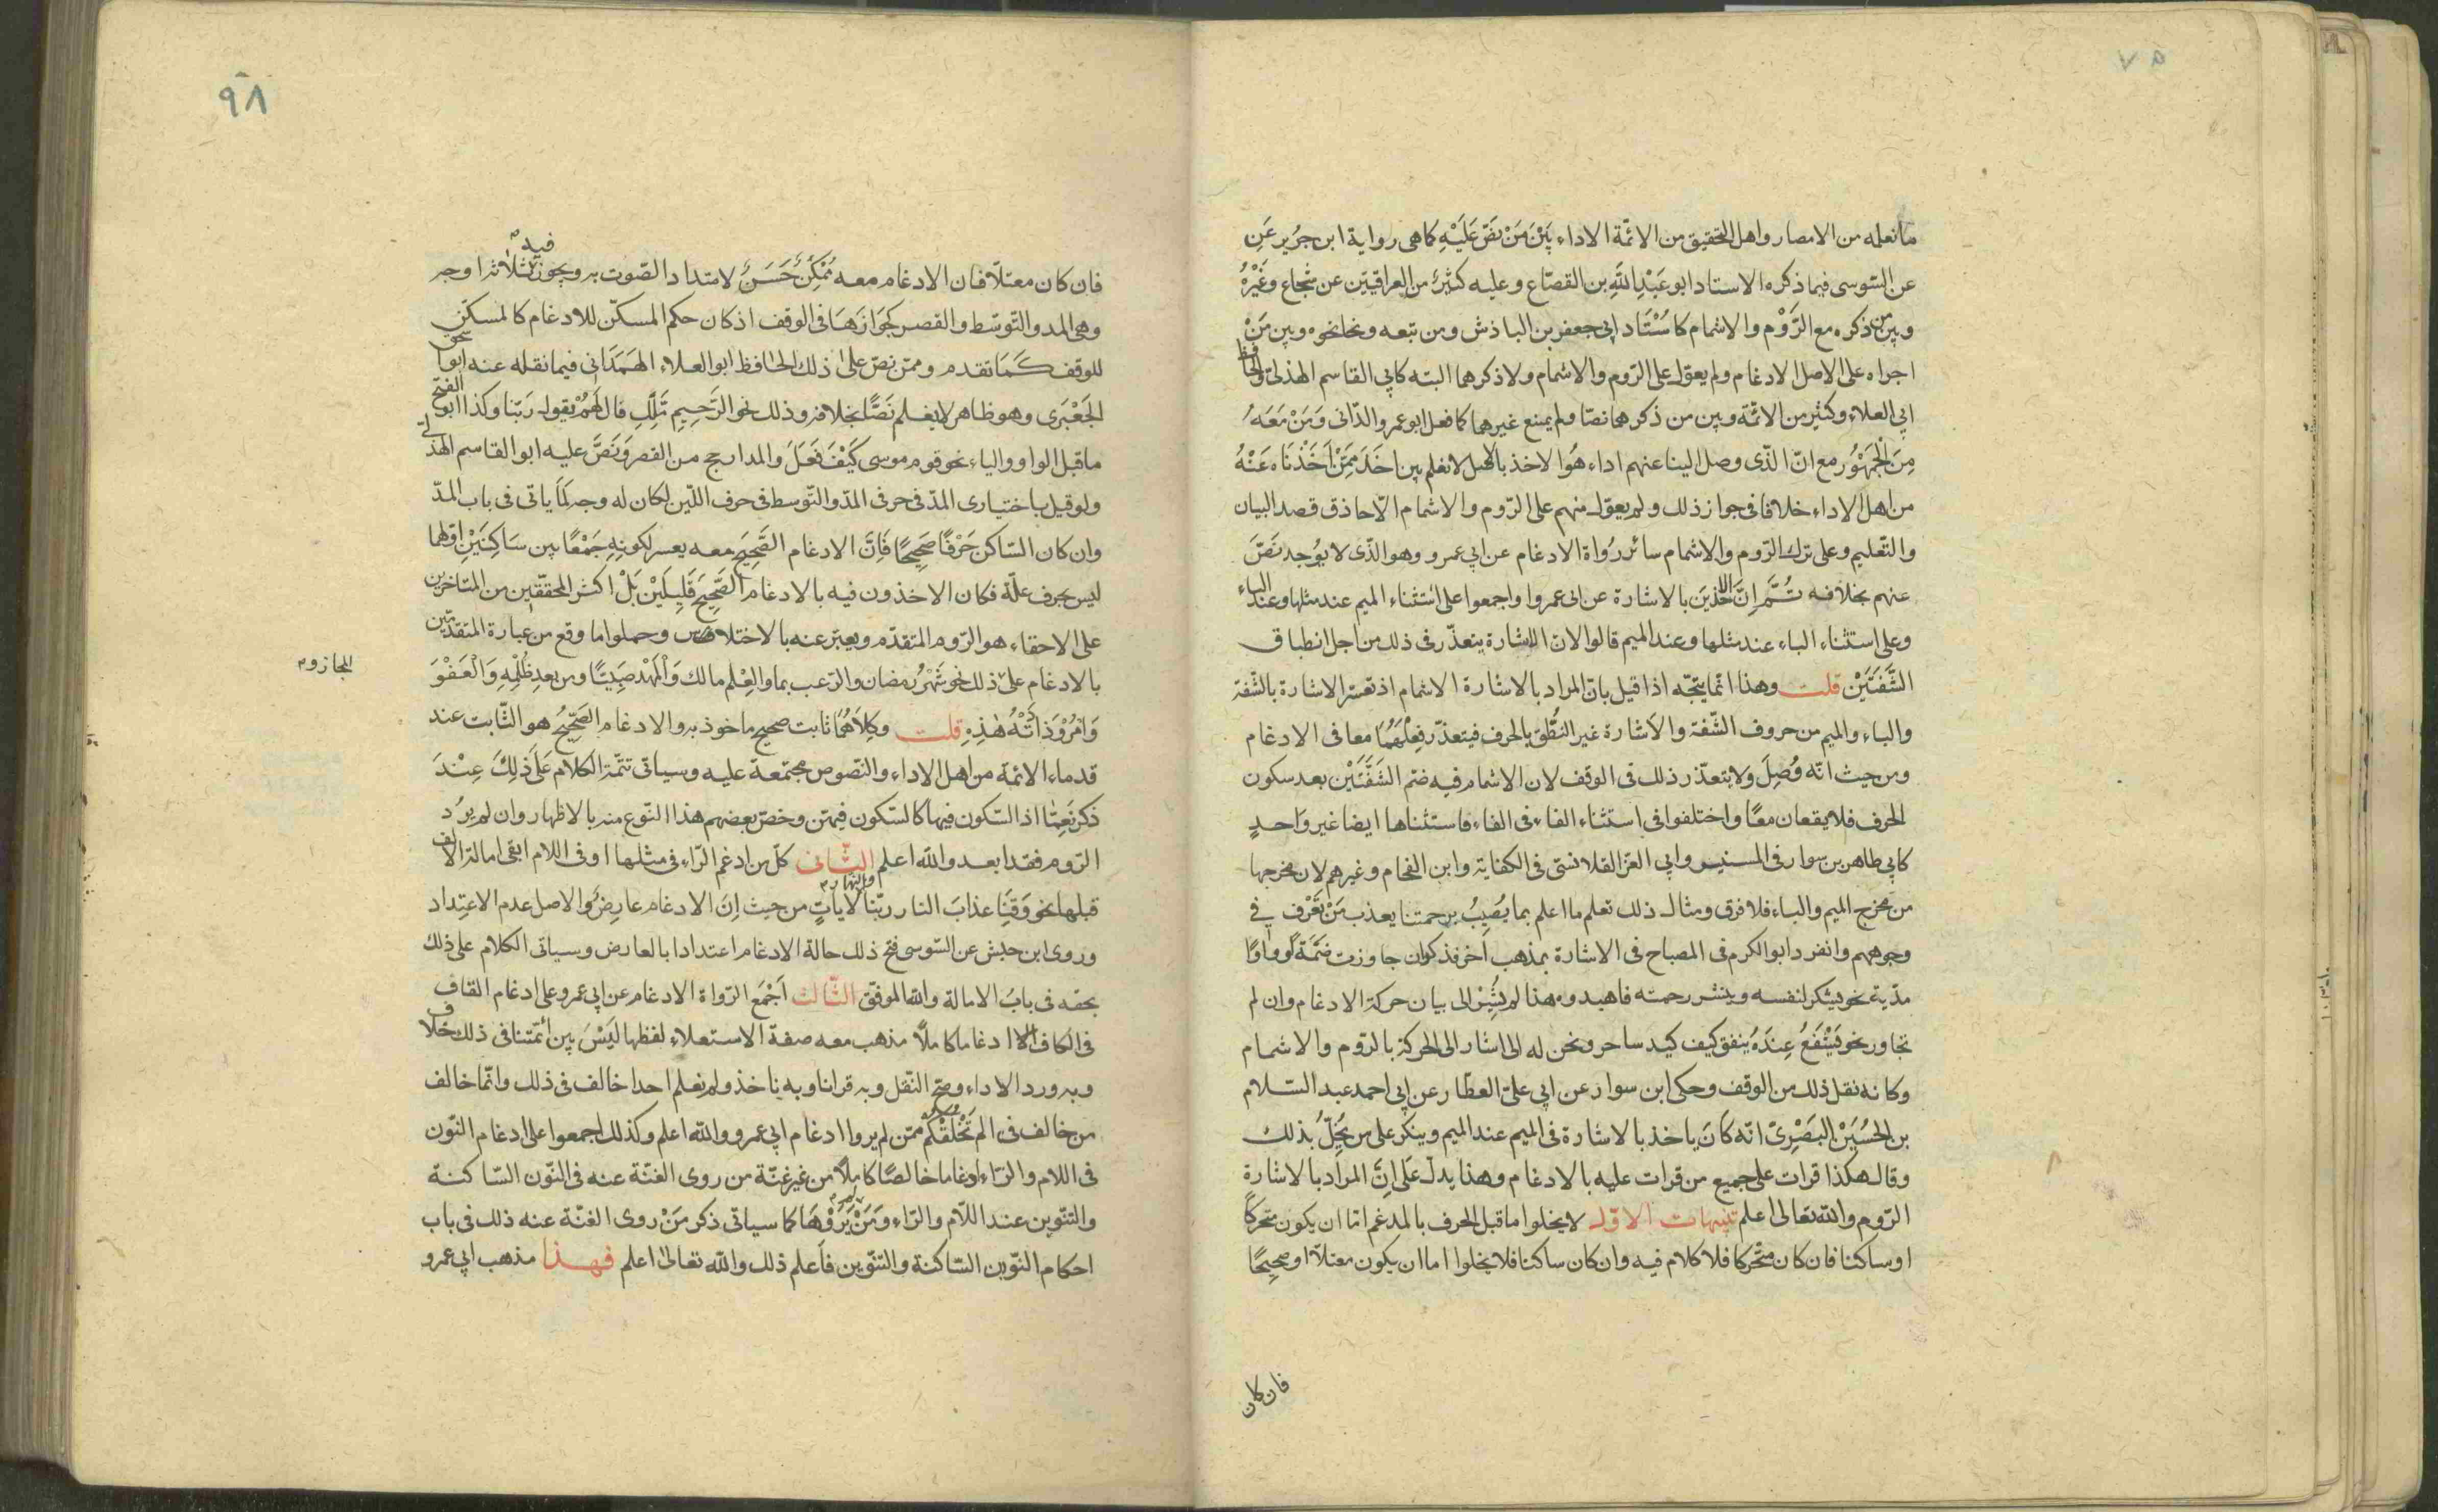 ما نعلمه من الامصار واهل التحقيق من الائمّة الاداء بَيْنَ مَنْ نصّ عَلَيْهِ كما هى رواية ابن جرير عَنِ
عن السّوسى فيما ذكره الاستاد ابو عَبْدِ اللهِ بن القصّاع وعليه كثيرٌ من العراقيّين عن شجاع وغَيْرُهُ
وبين من ذكره مع الرَّوْم والاشمام كاسُتَاد ابى جعفر بن الباذش ومن تبعه ونحا نحوه وبين مَنْ
اجراه على الاصل الادغام ولم يعوّل على الرّوم والاشمام ولا ذكرهما البته كابى القاسم الهذلى والحافظ
ابى العلاء وكثير من الائمّة وبين من ذكرهما نصّا ولم يمنع غيرهما كما فعل ابو عمرو الدّانى وَمَنْ مَعَهُ
مِنَ الجمهُور مع انّ الذّى وصل الينا عنهم اداء هُوَ الاخذ بالاصل لا نعلم بين اَخَذَ مِمَّنْ اَخَذْنَا عَنْهُ
من اهل الاداء خلافا فى جواز ذلك ولم يعوّل منهم على الرّوم والاشمام الّا حاذق قصد البيان
والتّعليم وعلى ترك الرّوم والاشمام سائر رُواة الادغام عن ابى عمرو وهو الذّى لا يُوجد نصّ
عنهم بخلافه ثُمَّ اِنَّ الاخذينَ بالاشارة عن ابى عمرو اواجمعوا على استثناء الميم عند مثلها وعند الباء
وعلى استثناء الباء عند مثلها وعند الميم قالوا لان الاشارة يتعذّر فى ذلك من اجل انطباق
الشَّفَتَيْن قلت وهذا انّما يتجّه اذا قيل بانّ المراد بالاشارة الاشمام اذ تعسر الاشارة بالشّفة
والباء والميم من حروف الشّفة والاشارة غير النُّطق بالحرف فيتعذّر فِعْلُهُمَا معا فى الادغام
ومن حيث انّه وُصِلَ ولا يتعذّر ذلك فى الوقف لان الاشمام فيه ضم الشَّفَتَيْن بعد سكون
الحرف فلا يقعان معًا واختلفوا فى استثناء الفاء فى الفاء فاستثناها ايضا غير واحدٍ
كابى طاهر بن سوار فى المستنير وابى العز القلانسى فى الكفاية وابن الفحام وغيرهم لان مخرجها
من مخرج الميم والباء فلا فرق ومثال ذلك تعلم ما اعلم بما يُصِيبُ برحمتنا يعذب مَنْ تعْرف فى
وجوههم وانفرد ابو الكرم فى المصباح فى الاشارة بمذهب اخر فذكر ان جاوزت ضَمّة أو واوًا
مدّية نحو يشكر لنفسه وينشر رحمته فاهبدوه هذا لم يُشِرْ الى بيان حركة الادغام وان لم
تجاور نحو يَشْفَعُ عِنْدَهُ ينفق كيف كيد ساحر ونحن له الى اشار الى الحركة بالرّوم والاشمام
وكانه نقل ذلك من الوقف وحكى ابن سوار عن ابى علىّ العطّار عن ابى احمد عبد السّلام
بن الحُسَيْن البَصْرِىّ انّه كَانَ ياخذ بالاشارة فى الميم عند الميم وينكر على من يُخِلُّ بذلك
وقال هكذا قرات على جميع من قرات عليه بالادغام وهذا يدلّ عَلى اِنَّ المراد بالاشارة
الرّوم والله تعالى اعلم تنبيهات الاوّل لا يخلوا ما قبل الحرف بالمدغم امّا ان يكون متحركاً
او ساكنا فان كان متحركا فلا كلام فيه وان كان ساكنا فلا يخلوا اما ان يكون معتلّا او صحِيحًا
فان كان
٩٨
فان كان معتلّا فان الادغام معه مُمْكِنٌ حَسَنٌ لامتداد الصّوت به ويجوز فيه ثلاثة اوجه
وهى المد والتّوسّط والقصر كَجَوَازهَا فى الوقف اذ كان حكم المسكّن للادغام كالمسكّن
للوقف كَمَا تقدم وممّن نصّ على ذلك الحافظ ابو العلاء الهَمَدَانى فيما نقله عنه ابو
الجَعْبَرى وهو ظاهر لا يعلم نَصًّا بخلافه وذلك نحو الرَّحِيمِ مَلِكِ قال لَهُمْ يقول ربّنا وكذا ابو الفتح
ما قبل الواو والياء نحو قوم موسى كَيْفَ فَعَلَ والمدارج من القصر وَنَصَّ عليه ابو القاسم الهذلى
ولو قيل باختيارى المدّ فى حرفى المدّ والتّوسط فى حرف اللّين لكان له وجه لما ياتى فى باب المدّ
وان كان السّاكن حَرْفًا صَحِيحًا فَاِنَّ الادغام الصَّحِيحَ معه يعسر لكونِهِ جَمْعًا بين سَاكِنَيْنِ اوّلهما
ليس بحرف علّة فكان الاخذون فيه بالادغام الصَّحِيحِ قَلِيلَيْنَ بَلْ اكثر المحقّقين من المتاخرين
على الاحفاء هو الرّوم المتقدّم ويعبّر عنه بالاختلاص وحملوا ما وقع من عبارة المتقدّمين
بالادغام على ذلك نحو شَهْرُ رمضان والرّعب بما والعِلْم مالك وَالمَهْدِ صَبِيًّا ومن بعدِ ظُلْمِهِ وَالْعَفْوَ
المجازوم
وَأمُرْ وَزَادَتْهُ هٰذِهِ قلت وكِلَاهُمَا ثابت صحيح ماخوذ به والادغام الصَّحِيْحُ هو الثّابت عند
قدماء الائمّة من اهل الاداء والنّصوص مجتمعة عليه وسياتى تتمّة الكلام عَلى ذَلِكَ عِنْدَ
ذكر نَعِمَّا اذ السّكون فيها كالسّكون فيهن وخصّ بعضهم هذا النّوع منه بالاظهار وان لم يرُد
الرّوم فقد ابعد والله اعلم الثّانى كلّ من ادغم الرّاء فى مثلها او فى اللام ابقى امالة الالف
قبلها نحو وَقِنَا عذابَ النار ربّنا والنهار لاياتٍ من حيث اِنَ الادغام عارِضٌ والاصل عدم الاعتِداد
وروى ابن حبش عن السّوسى فتح ذلك حالة الادغام اعتدادا بالعارض وسياتى الكلام على ذلك
بحقه فى بابُ الامالة والله الموفّق الثّالث اَجْمَع الرّواة الادغام عن ابى عمرو على ادغام القاف
فى الكاف الا ادغاما كاملاً مذهب معه صفة الاستعلاء لفظها لَيْسَ بين ائمّتنا فى ذلك خلاف
وبه ورد الاداء وصحّ النّقل وبه قرانا وبه ناخذ ولم نعلم احدا خالف فى ذلك وانّما خالف
من خالف فى الم نَخْلُقْكُّمْ ممّن لم يروا ادغام ابى عمرو والله اعلم وكذلك اجمعوا على ادغام النّون
فى اللام والرّاء ادغاما خالصًا كاملاً من غير غنّة من روى الغنّة عنه فى النّون السّاكنة
والتنّوين عند اللّام والرّاء وَمَنْ لم يَرْوِهَا كما سياتى ذكر مَنْ روى الغنّة عنه ذلك فى باب
احكام النّوين السّاكنة والتنّوين فاعلم ذلك والله تعالى اعلم فهذا مذهب ابى عمرو